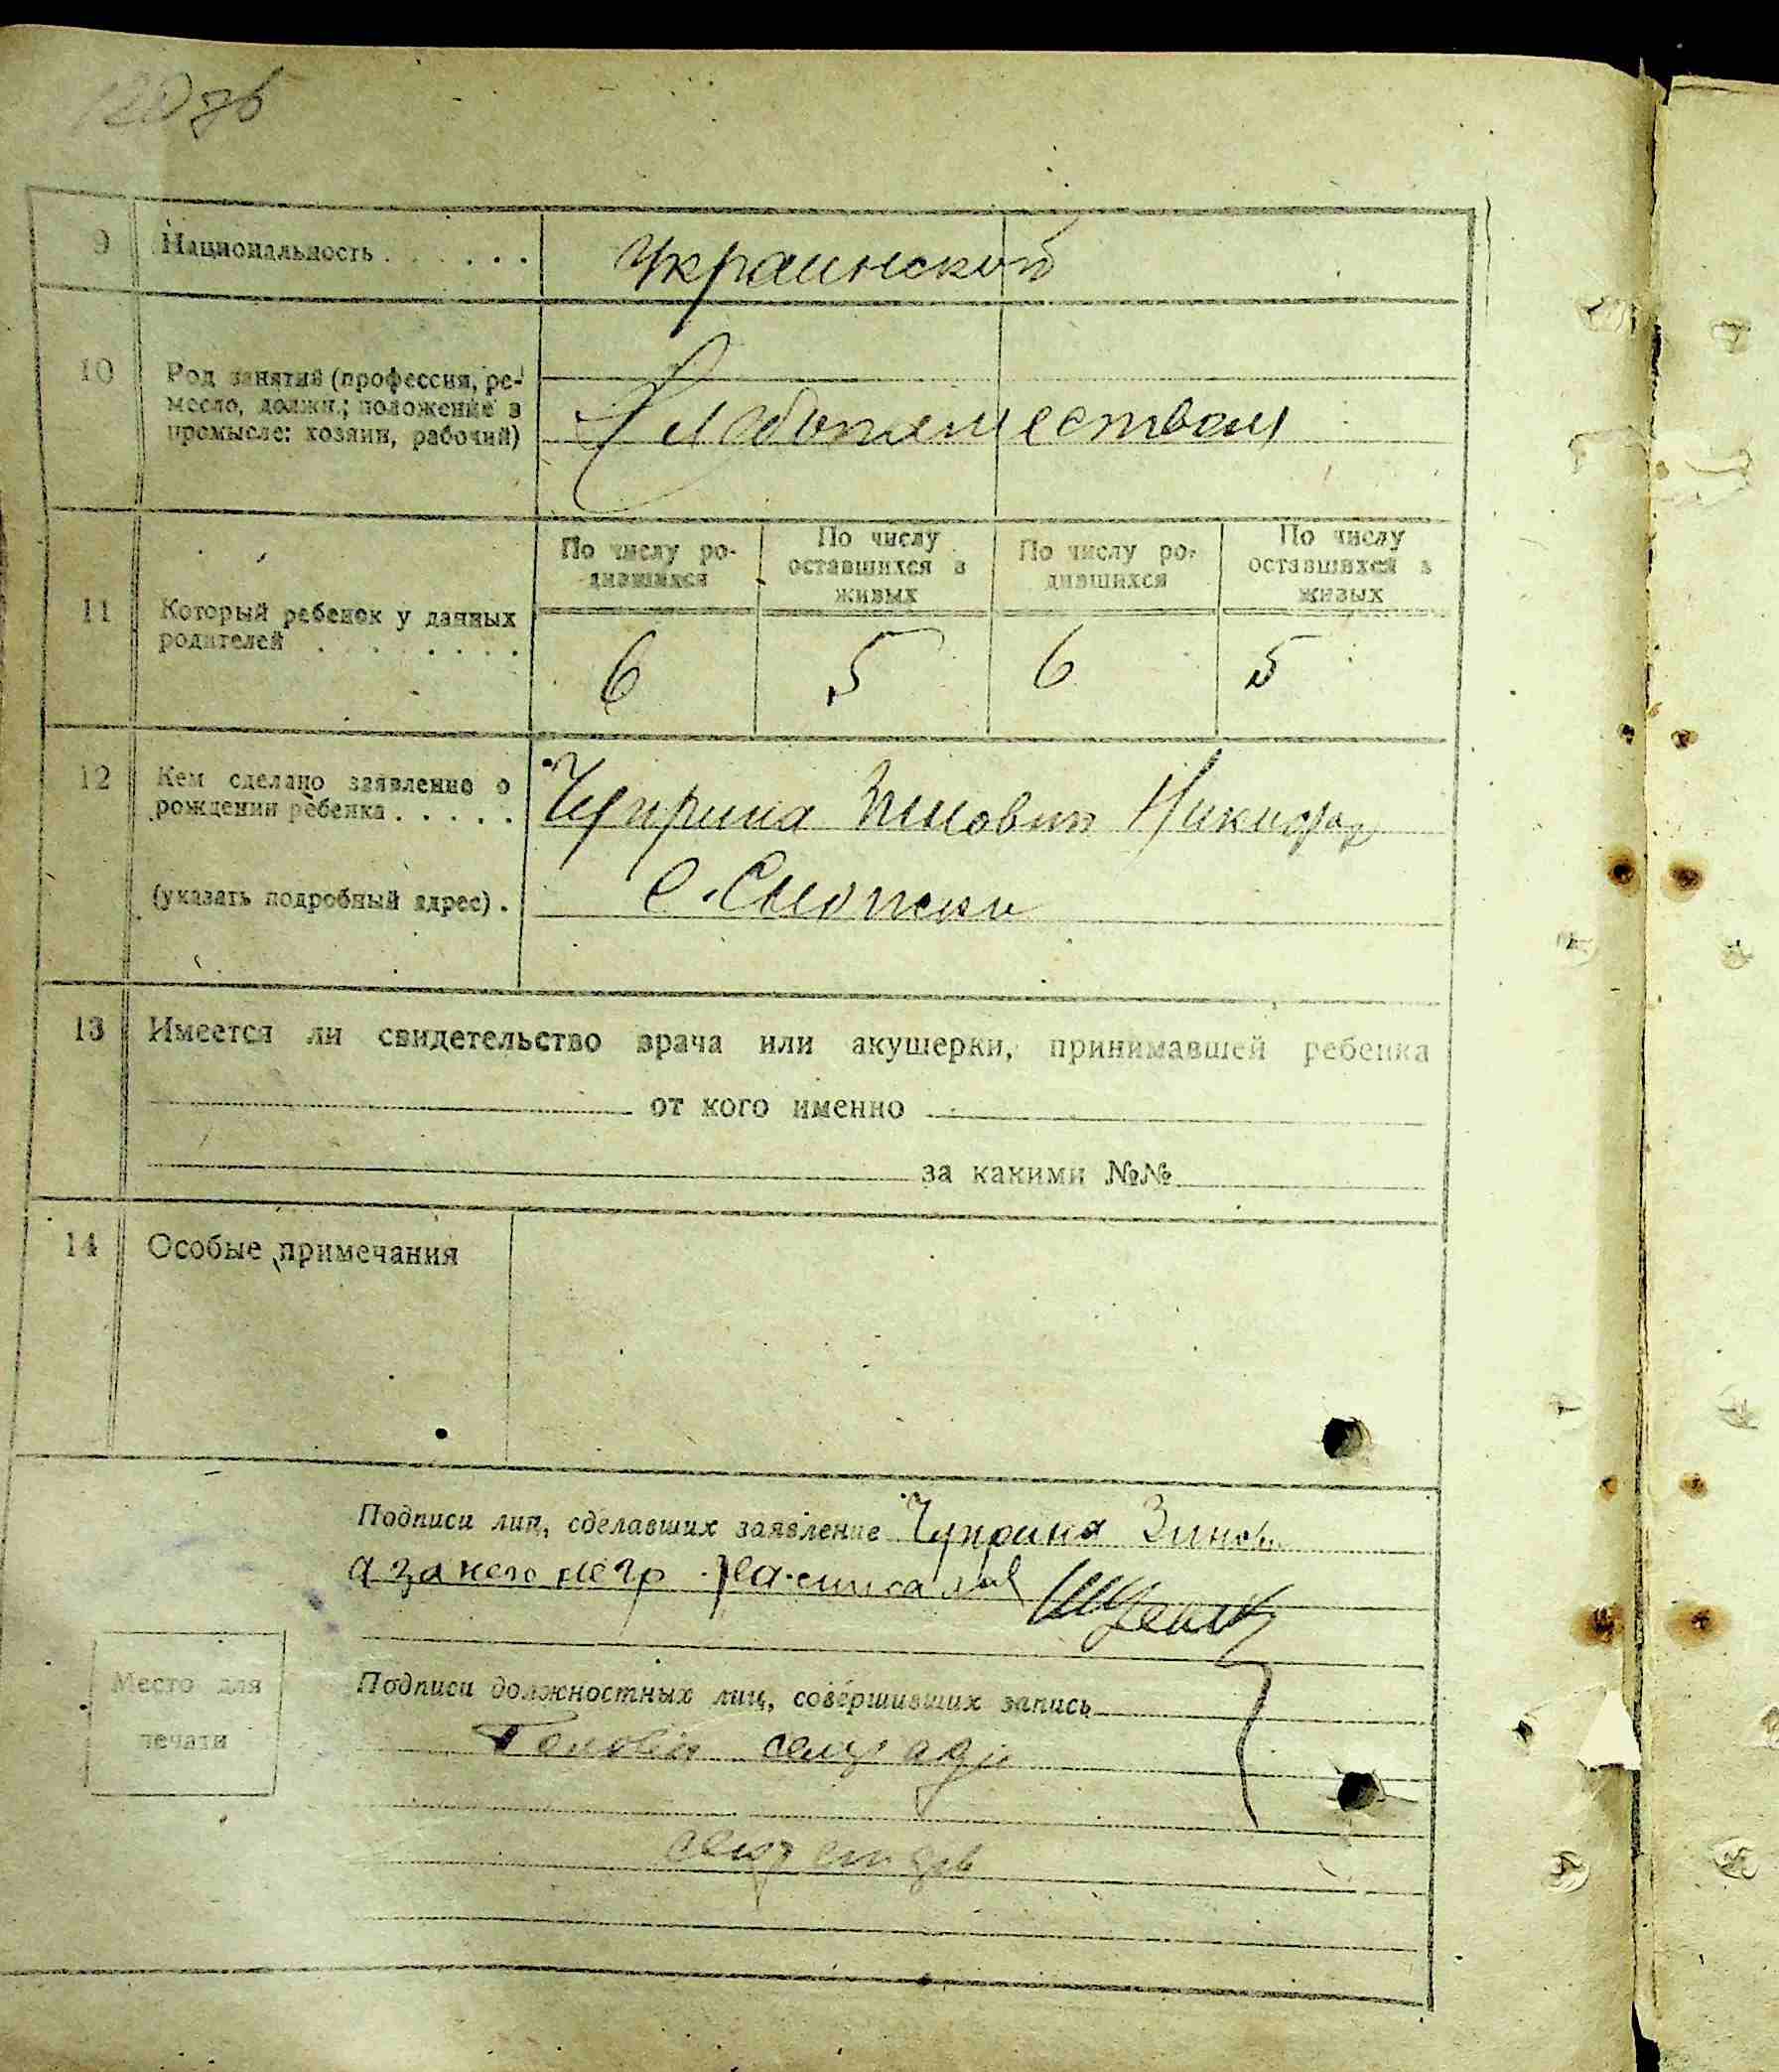 120 зв
9 Национальность . . . . . . Украинской
10 Род занятий (профессия, ре-
месло, должн.; положение в
промысле: хозяин, рабочий)
Хлебопашеством
По числу ро-
дившихся
По числу
оставшихся в
живых
По числу ро-
дившихся
По числу
оставшихся в
живых
11 Который ребенок у данных
родителей . . . . . . .
6 5 6 5
12 Кем сделано заявление о
рождении ребенка . . . . .
Чуприна Зиновий
(указать подробный адрес) .
с.
13 Имеется ли свидетельство врача или акушерки, принимавшей ребенка
от кого именно
за какими №№
14 Особые примечания
Подписи лиц, сделавших заявление Чуприна Зинов.
а за него негр расписался
Место для
печати
Подписи должностных лиц, совершивших запись
Голова сельради
секретарь